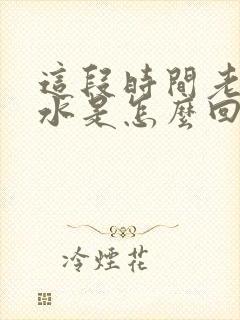 這段時間老
水是怎麼回
冷煙花